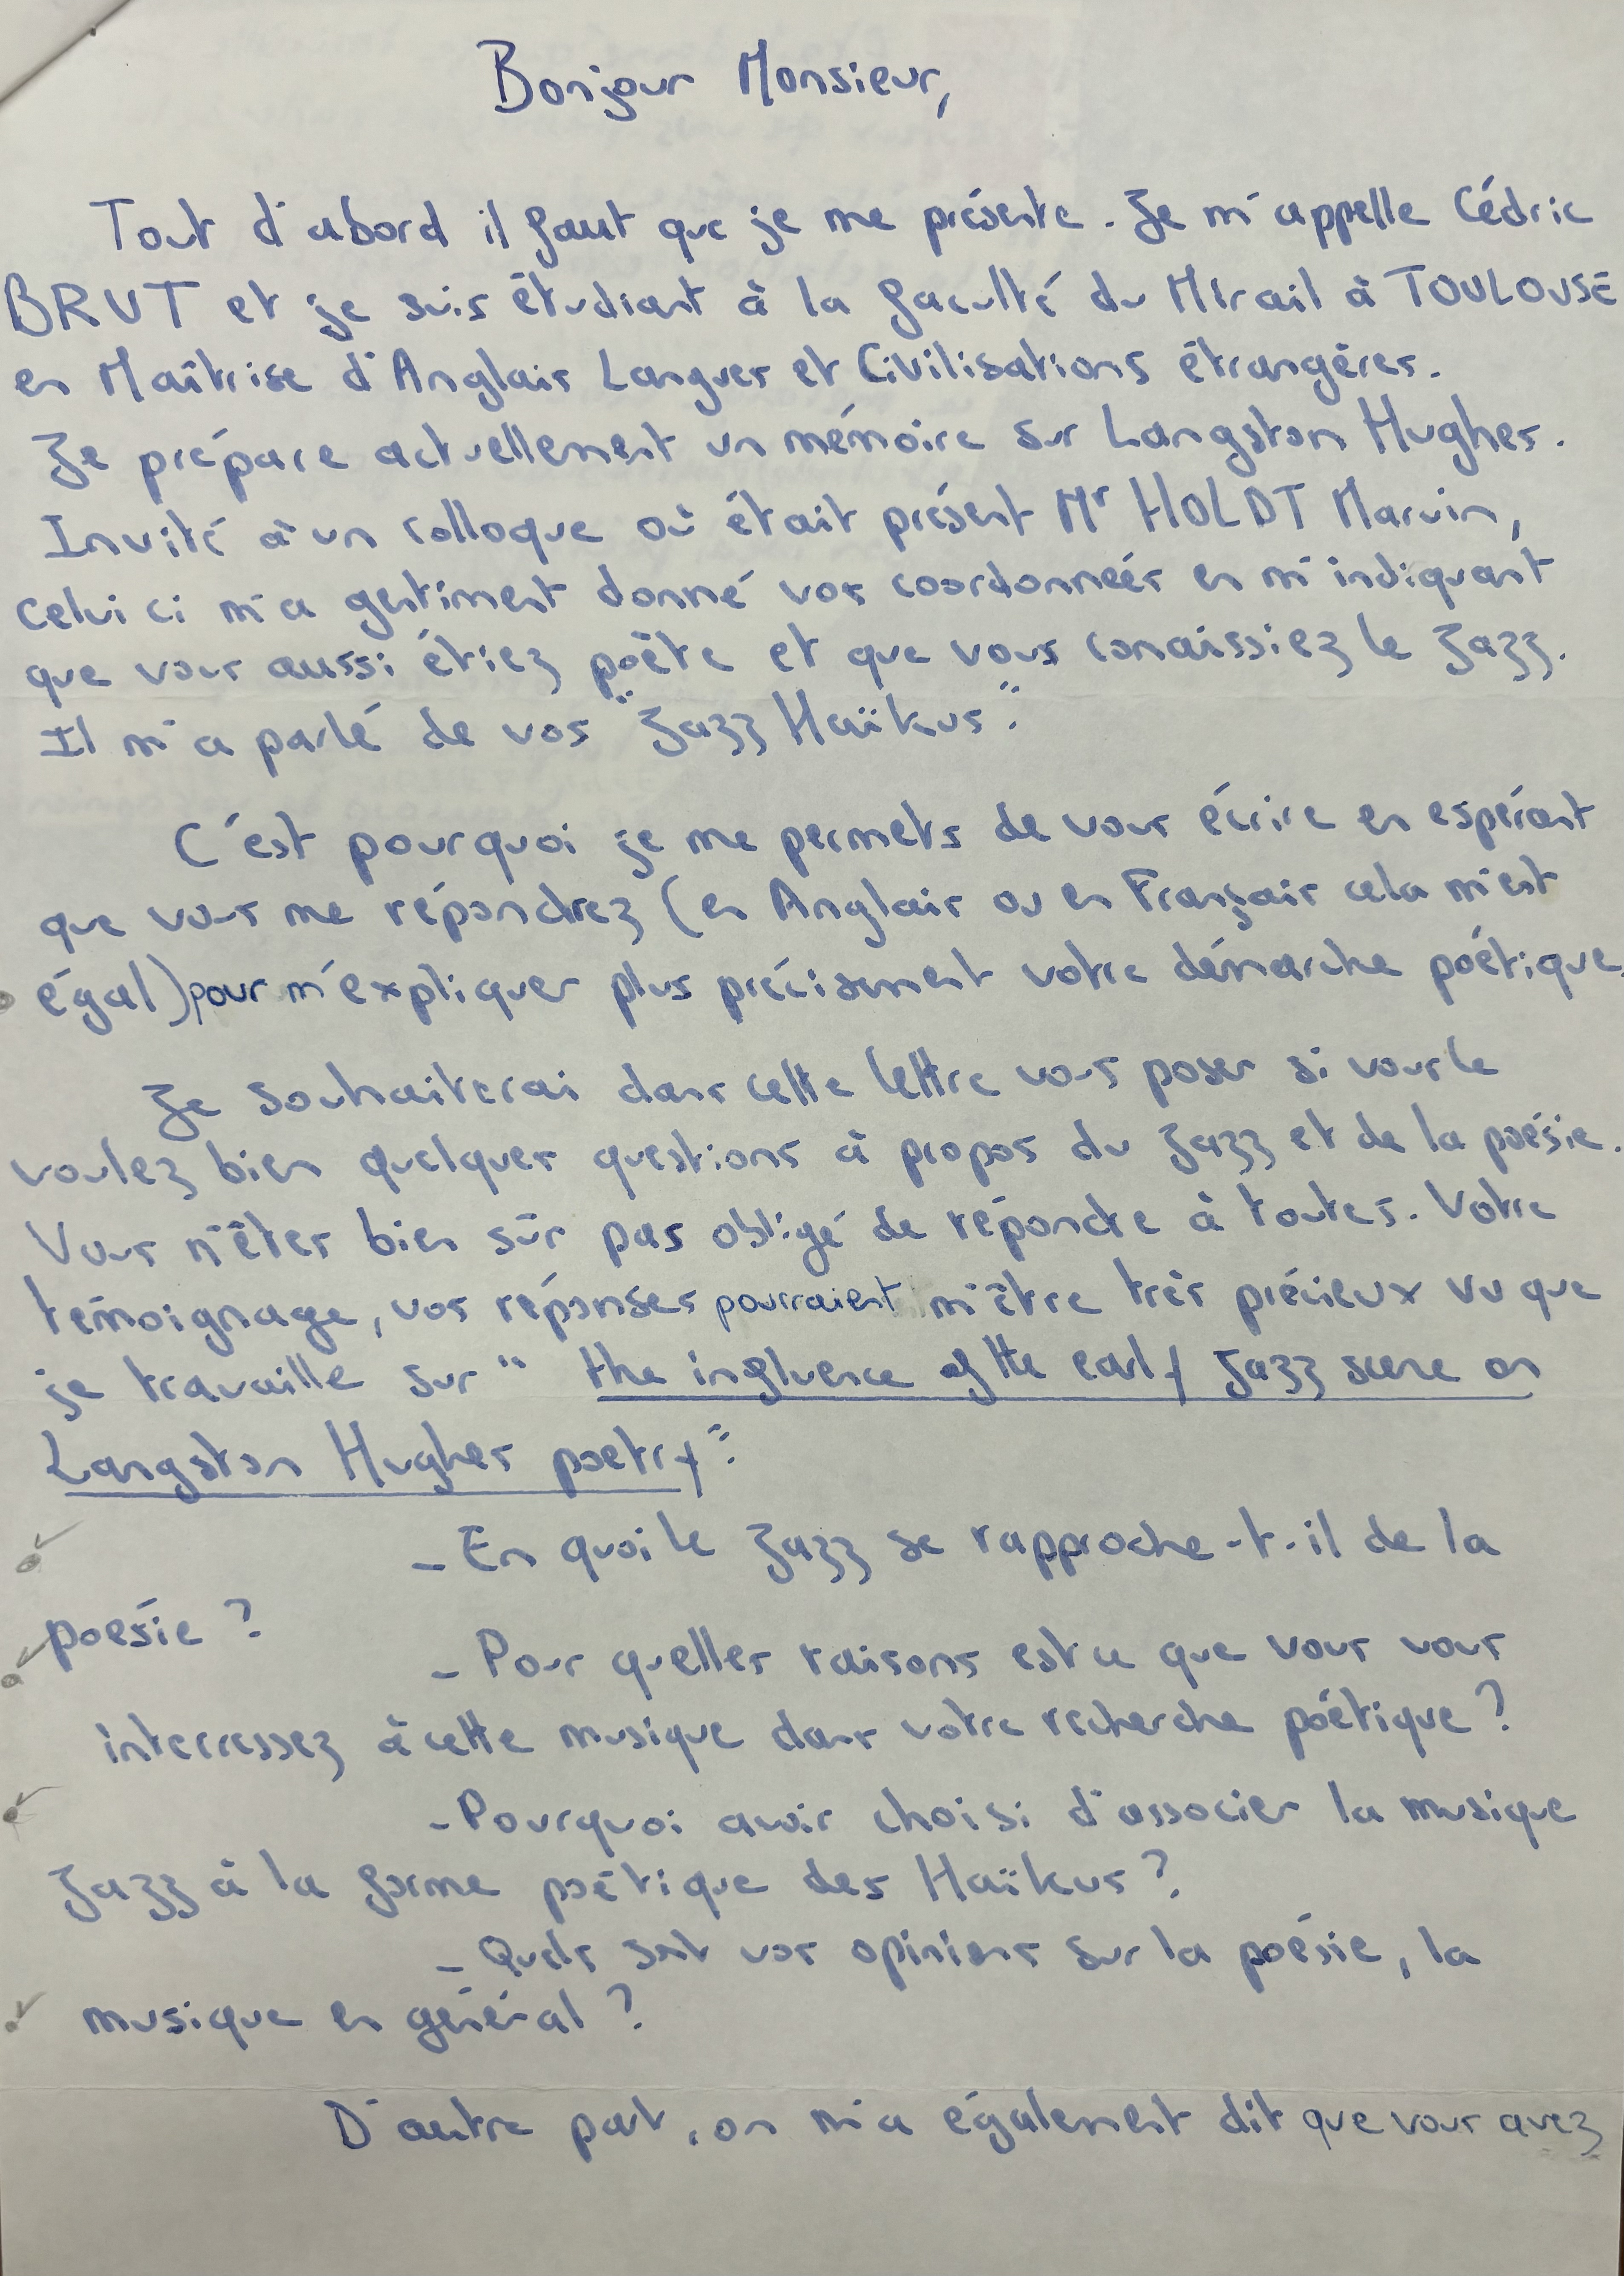 Bonjour Monsieur,
Tout d'abord il faut que je me présente. Je m'appelle Cédric
BRUT et je suis étudiant à la faculté du Mirail à TOULOUSE
en Maîtrise d'Anglais Langues et Civilisations étrangères.
Je prépare actuellement un mémoire sur Langston Hughes.
Invité à un colloque où était présent Mr HOLDT Marvin,
celui ci m'a gentiment donné vos coordonneés en m'indiquant
que vous aussi étiez poète et que vous conaissiez le Jazz.
Il m'a parlé de vos "Jazz Haïkus".
C'est pourquoi je me permets de vous écrire en espérant
que vous me répondrez (en Anglais ou en Français cela m'est
égal) pour m'expliquer plus précisement votre démarche poétique.
Je souhaiterai dans cette lettre vous poser si vous le
voulez bien quelques questions à propos du Jazz et de la poésie.
Vous n'êtes bien sûr pas obligé de répondre à toutes. Votre
témoignage, vos réponses pourraient m'être très précieux vu que
je travaille sur " the influence of the early Jazz scene on
Langston Hughes poetry".
- En quoi le Jazz se rapproche-t-il de la
poésie ?
- Pour quelles raisons est ce que vous vous
interressez à cette musique dans votre recherche poétique ?
- Pourquoi avoir choisi d'associer la musique
Jazz à la forme poétique des Haïkus ?
- Quels sont vos opinions sur la poésie, la
musique en général ?
D'autre part, on m'a également dit que vous avez